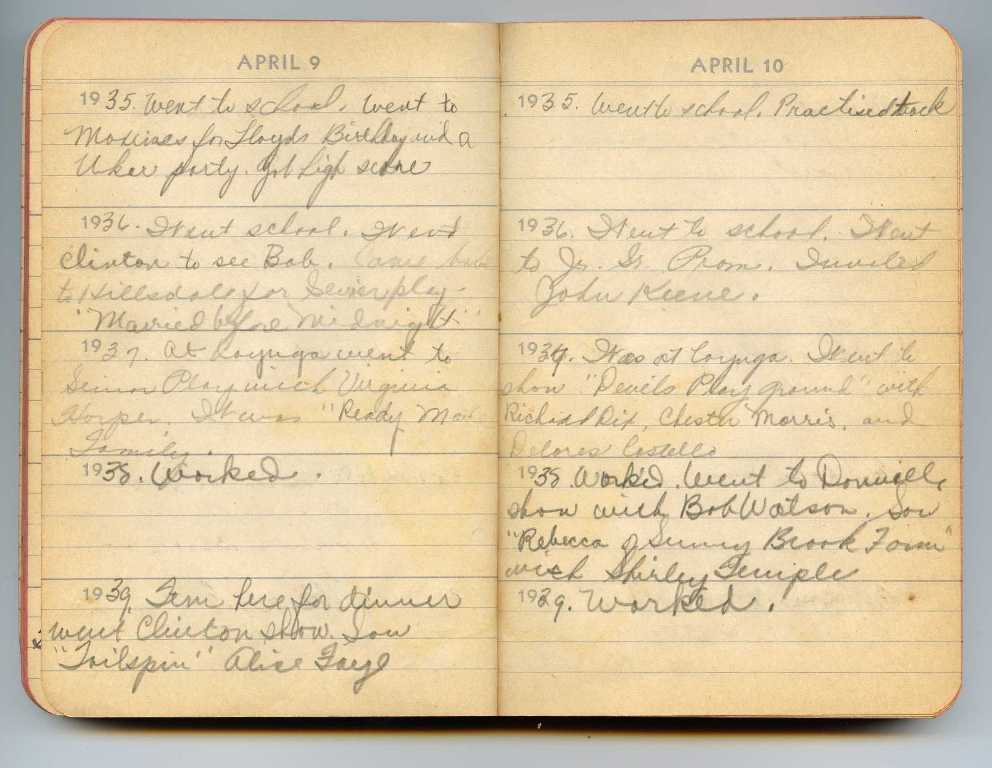 APRIL 9
1935. Went to school. Went to
Maxines for Lloyds Birthday and a
Uker party. Got high score
1936. Went school. Went
Clinton to see Bob. Came back
to Hillsdale for Senior play.
"Married before Midnight"
1937. At Cayuga went to
Senior Play with Virginia
Harper. It was "Ready Made
Family.
1938. Worked.
1939. Fern here for dinner
went Clinton show. Saw
"Tailspin" Alice Faye
APRIL 10
1935. Went to school. Practised track
1936. Went to school. Went
to Jr. Sr. Prom. Invited
John Keene.
1937. Was at Cayuga. Went to
show "Devils Play ground" with
Richard Dix, Chester Morris, and
Delores Costello
1938. Worked. Went to Danville
show with Bob Watson. Saw
"Rebecca of Sunny Brook Farm"
with Shirley Temple
1939. Worked.